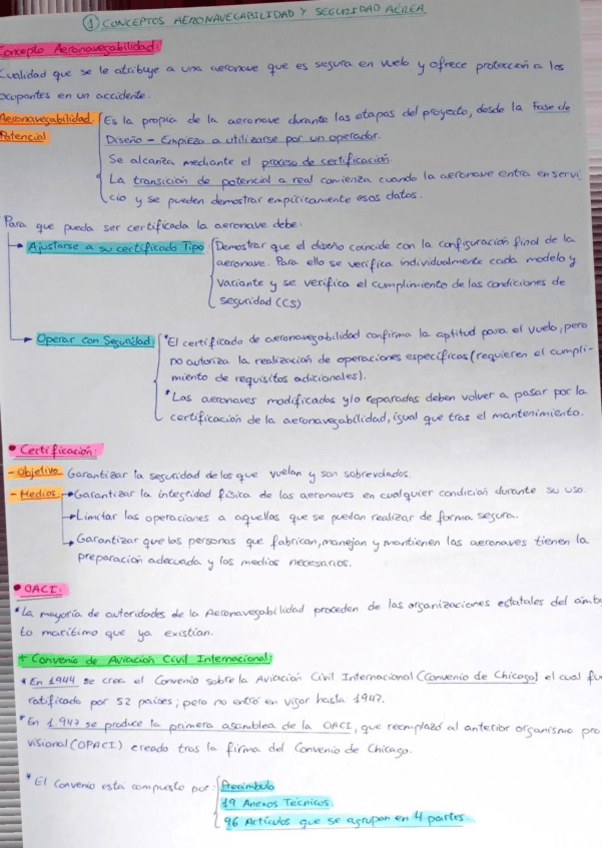 1 CONCEPTOS AERONAVEGABILIDAD Y SEGURIDAD AÉREA
Concepto Aeronavegabilidad:
Cualidad que se le atribuye a una aeronave que es segura en vuelo y ofrece protección a los
ocupantes en un accidente.
Aeronavegabilidad Es la propia de la aeronave durante las etapas del proyecto, desde la Fase de
Potencial Diseño - Empieza a utilizarse por un operador.
Se alcanza mediante el proceso de certificación.
La transición de potencial a real comienza cuando la aeronave entra en servi
cio y se pueden demostrar empíricamente esos datos.
Para que pueda ser certificada la aeronave debe:
→ Ajustarse a su certificado Tipo Demostrar que el diseño coincide con la configuración final de la
aeronave. Para ello se verifica individualmente cada modelo y
variante y se verifica el cumplimiento de las condiciones de
seguridad (CS)
→ Operar con Seguridad: * El certificado de aeronavegabilidad confirma la aptitud para el vuelo, pero
no autoriza la realización de operaciones específicas (requieren el cumpli-
miento de requisitos adicionales).
* Las aeronaves modificadas y/o reparadas deben volver a pasar por la
certificación de la aeronavegabilidad, igual que tras el mantenimiento.
• Certificación:
- Objetivo Garantizar la seguridad de los que vuelan y son sobrevolados.
- Medios → Garantizar la integridad física de las aeronaves en cualquier condición durante su uso.
→ Limitar las operaciones a aquellas que se puedan realizar de forma segura.
→ Garantizar que las personas que fabrican, manejan y mantienen las aeronaves tienen la
preparación adecuada y los medios necesarios.
• OACI:
* La mayoría de autoridades de la Aeronavegabilidad proceden de las organizaciones estatales del ámbi
to marítimo que ya existían.
+ Convenio de Aviación Civil Internacional:
* En 1944 se crea el Convenio sobre la Aviación Civil Internacional (Convenio de Chicago) el cual fu
ratificado por 52 países; pero no entró en vigor hasta 1947.
* En 1947 se produce la primera asamblea de la OACI, que reemplazó al anterior organismo pro
visional (OPACI) creado tras la firma del Convenio de Chicago.
* El Convenio está compuesto por: Preámbulo
19 Anexos Técnicos.
96 Artículos que se agrupan en 4 partes.